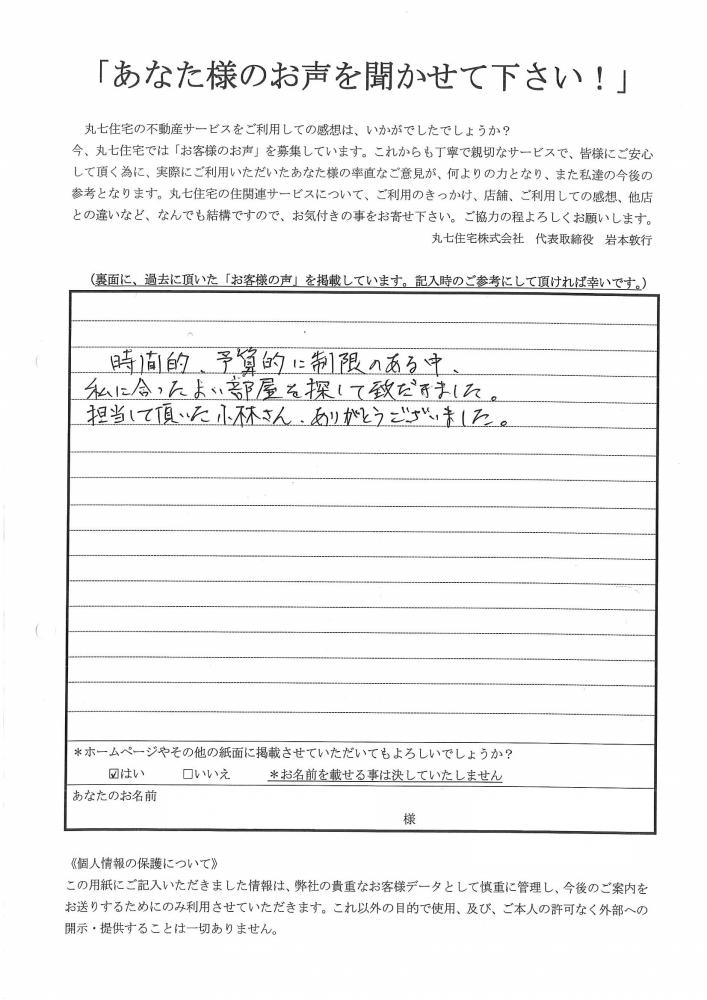 「あなた様のお声を聞かせて下さい！」
丸七住宅の不動産サービスをご利用しての感想は、いかがでしたでしょうか？
今、丸七住宅では「お客様のお声」を募集しています。これからも丁寧で親切なサービスで、皆様にご安心
して頂く為に、実際にご利用いただいたあなた様の率直なご意見が、何よりの力となり、また私達の今後の
参考となります。丸七住宅の住関連サービスについて、ご利用のきっかけ、店舗、ご利用しての感想、他店
との違いなど、なんでも結構ですので、お気付きの事をお寄せ下さい。ご協力の程よろしくお願いします。
丸七住宅株式会社　代表取締役　岩本敦行
（裏面に、過去に頂いた「お客様の声」を掲載しています。記入時のご参考にして頂ければ幸いです。）
時間的、予算的に制限のある中、
私に合ったよい部屋を探して致だきました。
担当して頂いた小林さん、ありがとうございました。
＊ホームページやその他の紙面に掲載させていただいてもよろしいでしょうか？
☑はい　□いいえ　＊お名前を載せる事は決していたしません
あなたのお名前
様
《個人情報の保護について》
この用紙にご記入いただきました情報は、弊社の貴重なお客様データとして慎重に管理し、今後のご案内を
お送りするためにのみ利用させていただきます。これ以外の目的で使用、及び、ご本人の許可なく外部への
開示・提供することは一切ありません。